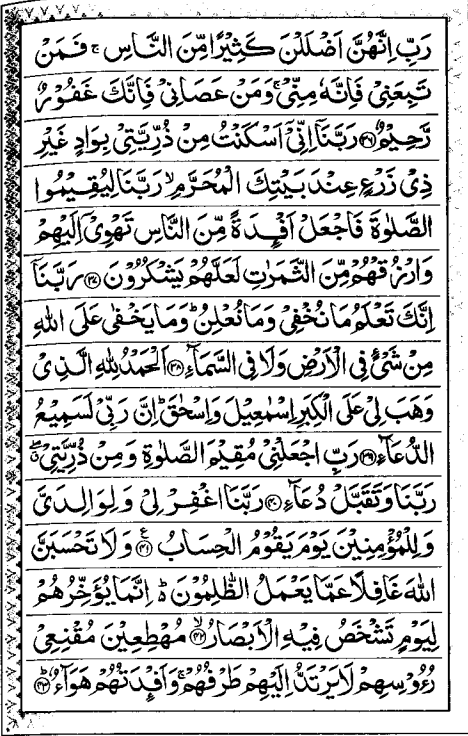 رَبِّ اِنَّهُنَّ اَضْلَلْنَ كَثِيْرًا مِّنَ النَّاسِ ۚ فَمَنْ
تَبِعَنِيْ فَاِنَّهٗ مِنِّيْ ۚ وَمَنْ عَصَانِيْ فَاِنَّكَ غَفُوْرٌ
رَّحِيْمٌ ﴿۳۶﴾ رَبَّنَاۤ اِنِّيْۤ اَسْكَنْتُ مِنْ ذُرِّيَّتِيْ بِوَادٍ غَيْرِ
ذِيْ زَرْعٍ عِنْدَ بَيْتِكَ الْمُحَرَّمِ ۙ رَبَّنَا لِيُقِيْمُوا
الصَّلٰوةَ فَاجْعَلْ اَفْـِٕدَةً مِّنَ النَّاسِ تَهْوِيْۤ اِلَيْهِمْ
وَارْزُقْهُمْ مِّنَ الثَّمَرٰتِ لَعَلَّهُمْ يَشْكُرُوْنَ ﴿۳۷﴾ رَبَّنَاۤ
اِنَّكَ تَعْلَمُ مَا نُخْفِيْ وَمَا نُعْلِنُ ؕ وَمَا يَخْفٰى عَلَى اللّٰهِ
مِنْ شَيْءٍ فِي الْاَرْضِ وَلَا فِي السَّمَآءِ ﴿۳۸﴾ اَلْحَمْدُ لِلّٰهِ الَّذِيْ
وَهَبَ لِيْ عَلَى الْكِبَرِ اِسْمٰعِيْلَ وَاِسْحٰقَ ؕ اِنَّ رَبِّيْ لَسَمِيْعُ
الدُّعَآءِ ﴿۳۹﴾ رَبِّ اجْعَلْنِيْ مُقِيْمَ الصَّلٰوةِ وَمِنْ ذُرِّيَّتِيْ ۖ
رَبَّنَا وَتَقَبَّلْ دُعَآءِ ﴿۴۰﴾ رَبَّنَا اغْفِرْ لِيْ وَلِوَالِدَيَّ
وَلِلْمُؤْمِنِيْنَ يَوْمَ يَقُوْمُ الْحِسَابُ ﴿۴۱﴾ وَلَا تَحْسَبَنَّ
اللّٰهَ غَافِلًا عَمَّا يَعْمَلُ الظّٰلِمُوْنَ ۬ؕ اِنَّمَا يُؤَخِّرُهُمْ
لِيَوْمٍ تَشْخَصُ فِيْهِ الْاَبْصَارُ ﴿۴۲﴾ۙ مُهْطِعِيْنَ مُقْنِعِيْ
رُءُوْسِهِمْ لَا يَرْتَدُّ اِلَيْهِمْ طَرْفُهُمْ ۚ وَاَفْـِٕدَتُهُمْ هَوَآءٌ ﴿۴۳﴾ؕ